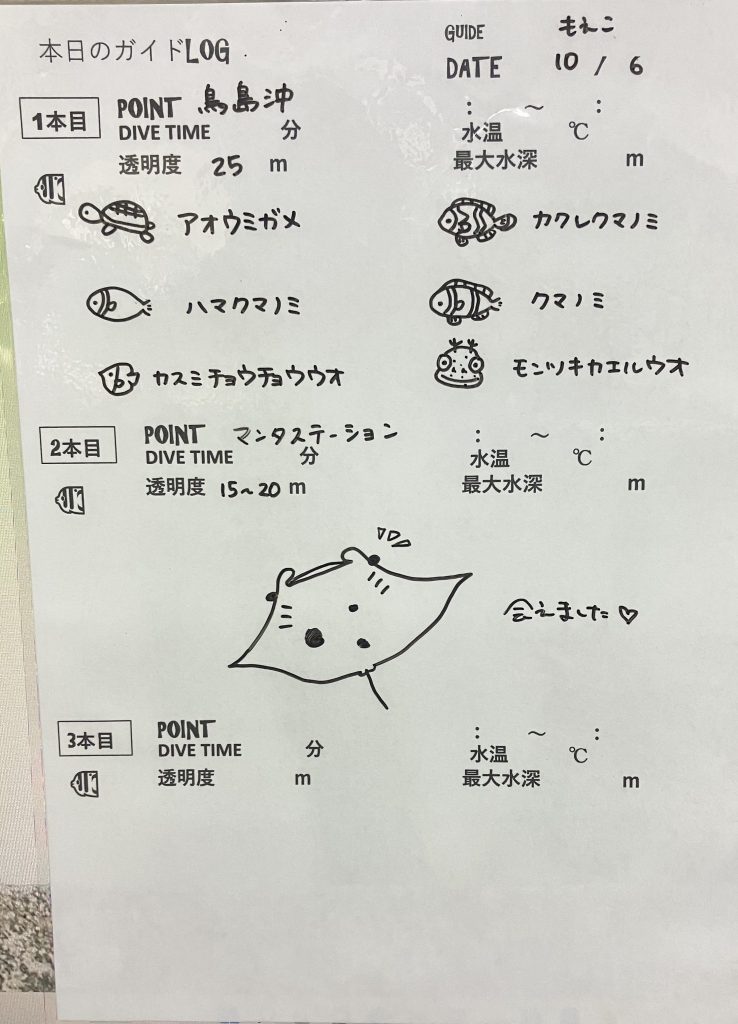 本日のガイドLOG
GUIDE もえこ
DATE 10 / 6
1本目 POINT 鳥島沖 : ～ :
DIVE TIME 分 水温 ℃
透明度 25 m 最大水深 m
アオウミガメ カクレクマノミ
ハマクマノミ クマノミ
カスミチョウチョウウオ モンツキカエルウオ
2本目 POINT マンタステーション : ～ :
DIVE TIME 分 水温 ℃
透明度 15~20 m 最大水深 m
会えました♡
3本目 POINT : ～ :
DIVE TIME 分 水温 ℃
透明度 m 最大水深 m